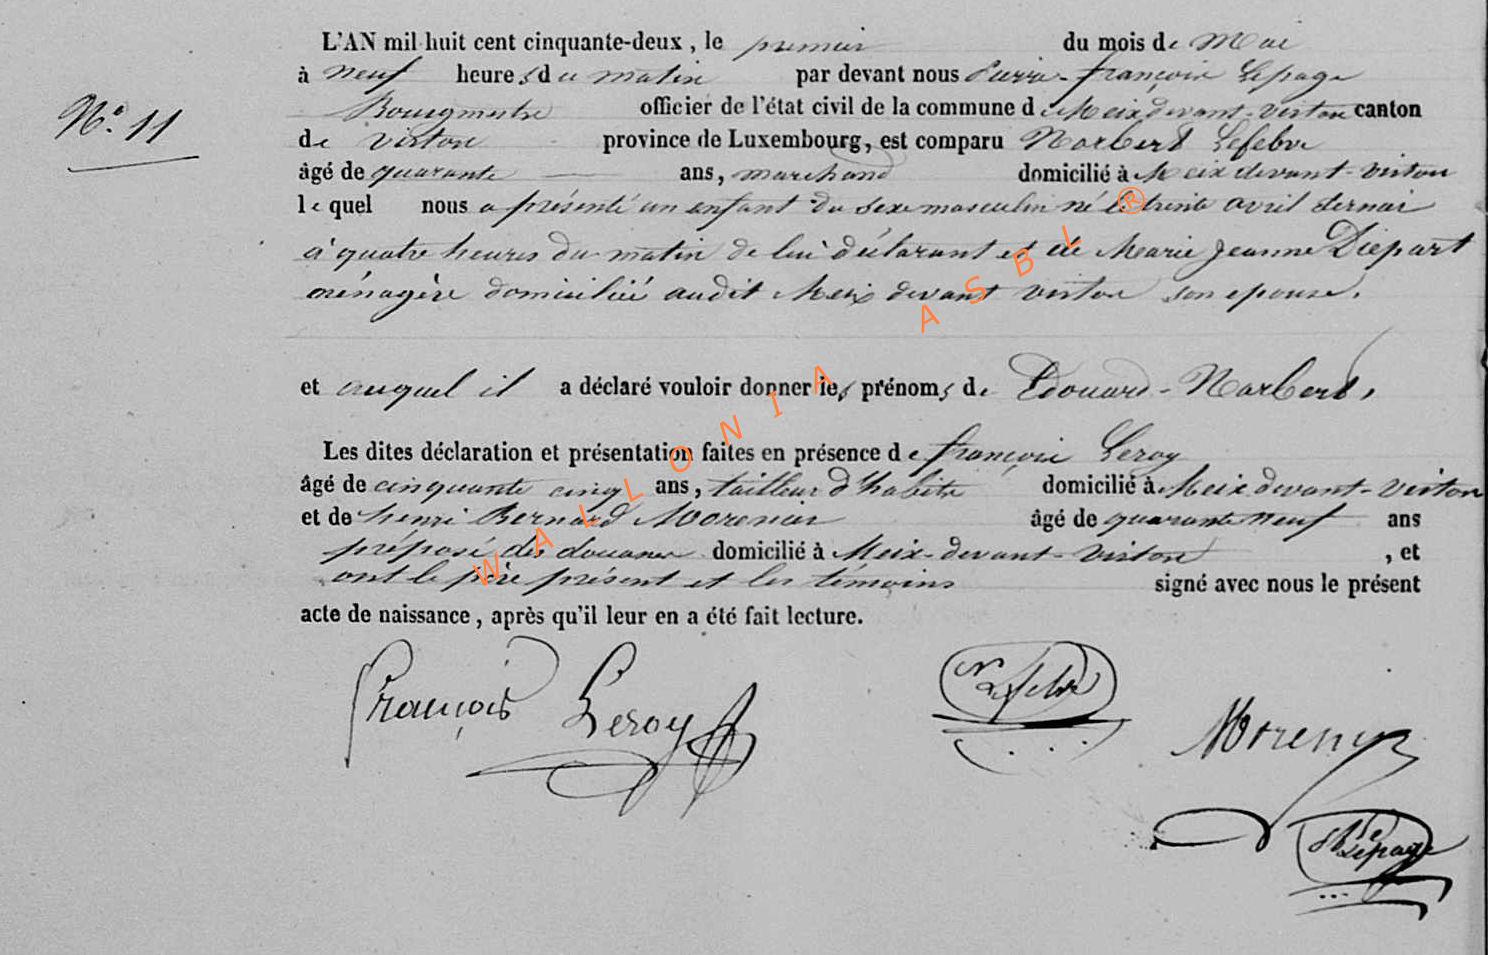 L'AN mil huit cent cinquante-deux, le premier du mois de Mai
à neuf heures du matin par devant nous Pierre-françois Lepage
Bourgmestre officier de l'état civil de la commune de Meix devant-virton canton
de virton province de Luxembourg, est comparu Norbert Lefebvre
N° 11
âgé de quarante ans, marchand domicilié à Meix devant-virton
lequel nous a présenté un enfant du sexe masculin né le trente avril dernier
à quatre heures du matin de lui déclarant et de Marie Jeanne Diepart
ménagère domiciliée audit Meix devant virton son epouse.
et auquel il a déclaré vouloir donner les prénoms de Edouard-Norbert,
Les dites déclaration et présentation faites en présence de françois Leroy
âgé de cinquante cinq ans, tailleur d'habits domicilié à Meix devant-virton
et de henri Bernard Morenier âgé de quarante neuf ans
préposé des douanes domicilié à Meix-devant-virton, et
ont le père présent et les témoins signé avec nous le présent
acte de naissance, après qu'il leur en a été fait lecture.
François Leroy
N Lefebvre
Lepage
WALLONIA ASBL ®